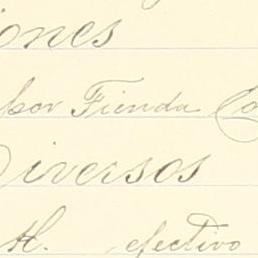 iones
por Tienda Co
Diversos
H. efectivo